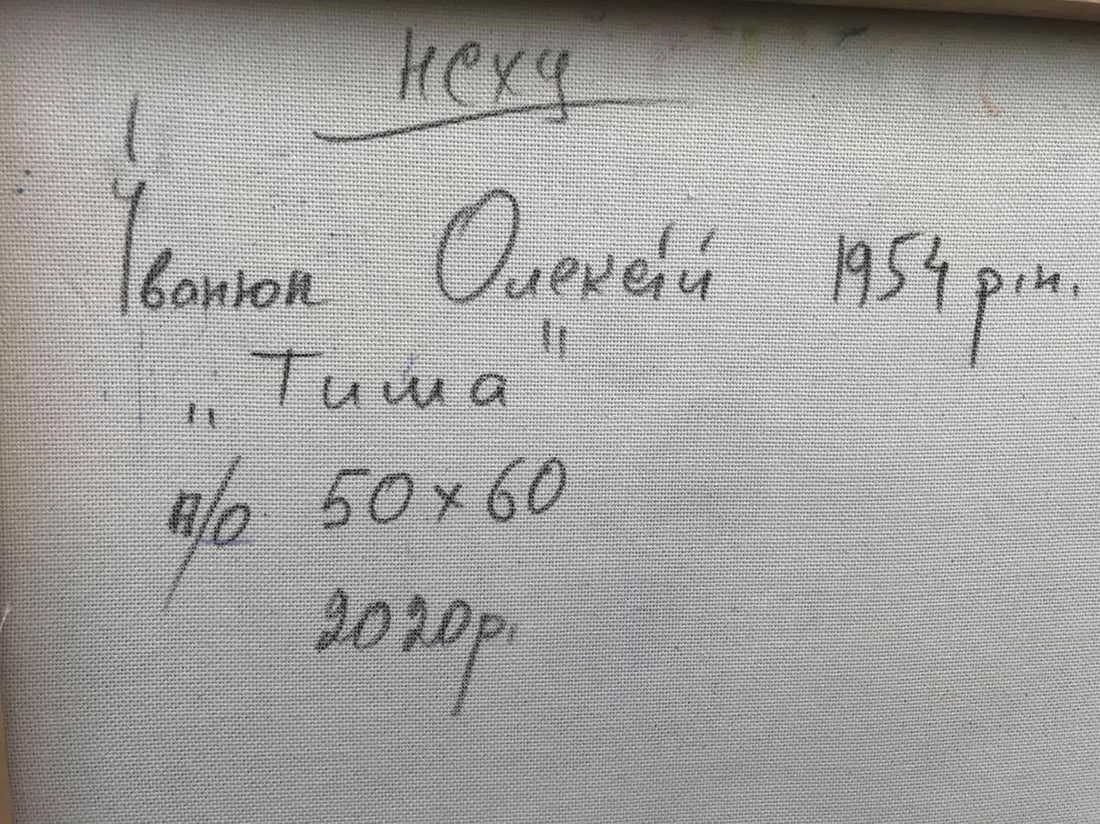 НСХУ
Іванюк Олексій 1954 р.н.
"Тиша"
п/о 50х60
2020р.